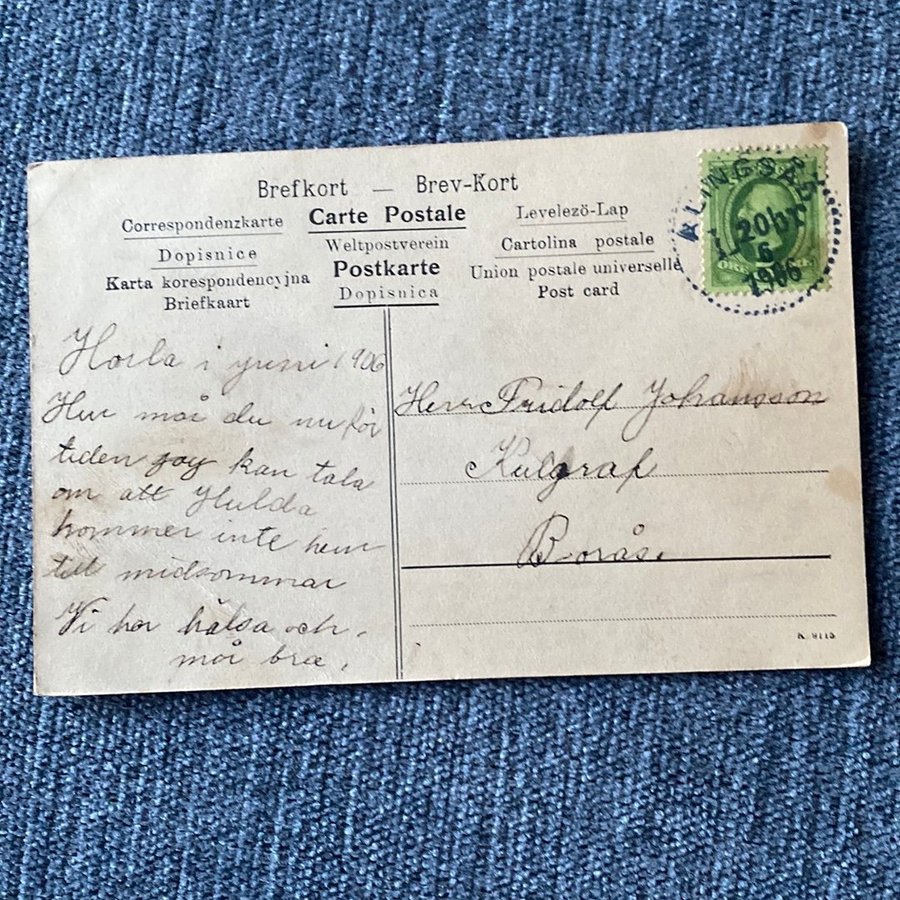 Brefkort — Brev-Kort
Correspondenzkarte Carte Postale Levelezö-Lap
Dopisnice Weltpostverein Cartolina postale
Karta korespondencyjna Postkarte Union postale universelle
Briefkaart Dopisnica Post card
ALINGSÅS
20
6
1906
Horla i juni 1906
Hur mår du nu för
tiden jag kan tala
om att Hulda
kommer inte hem
till midsommar
Vi har hälsa och
mår bra.
Herr Fridolf Johansson
Kulgraf
Borås.
K. 9115